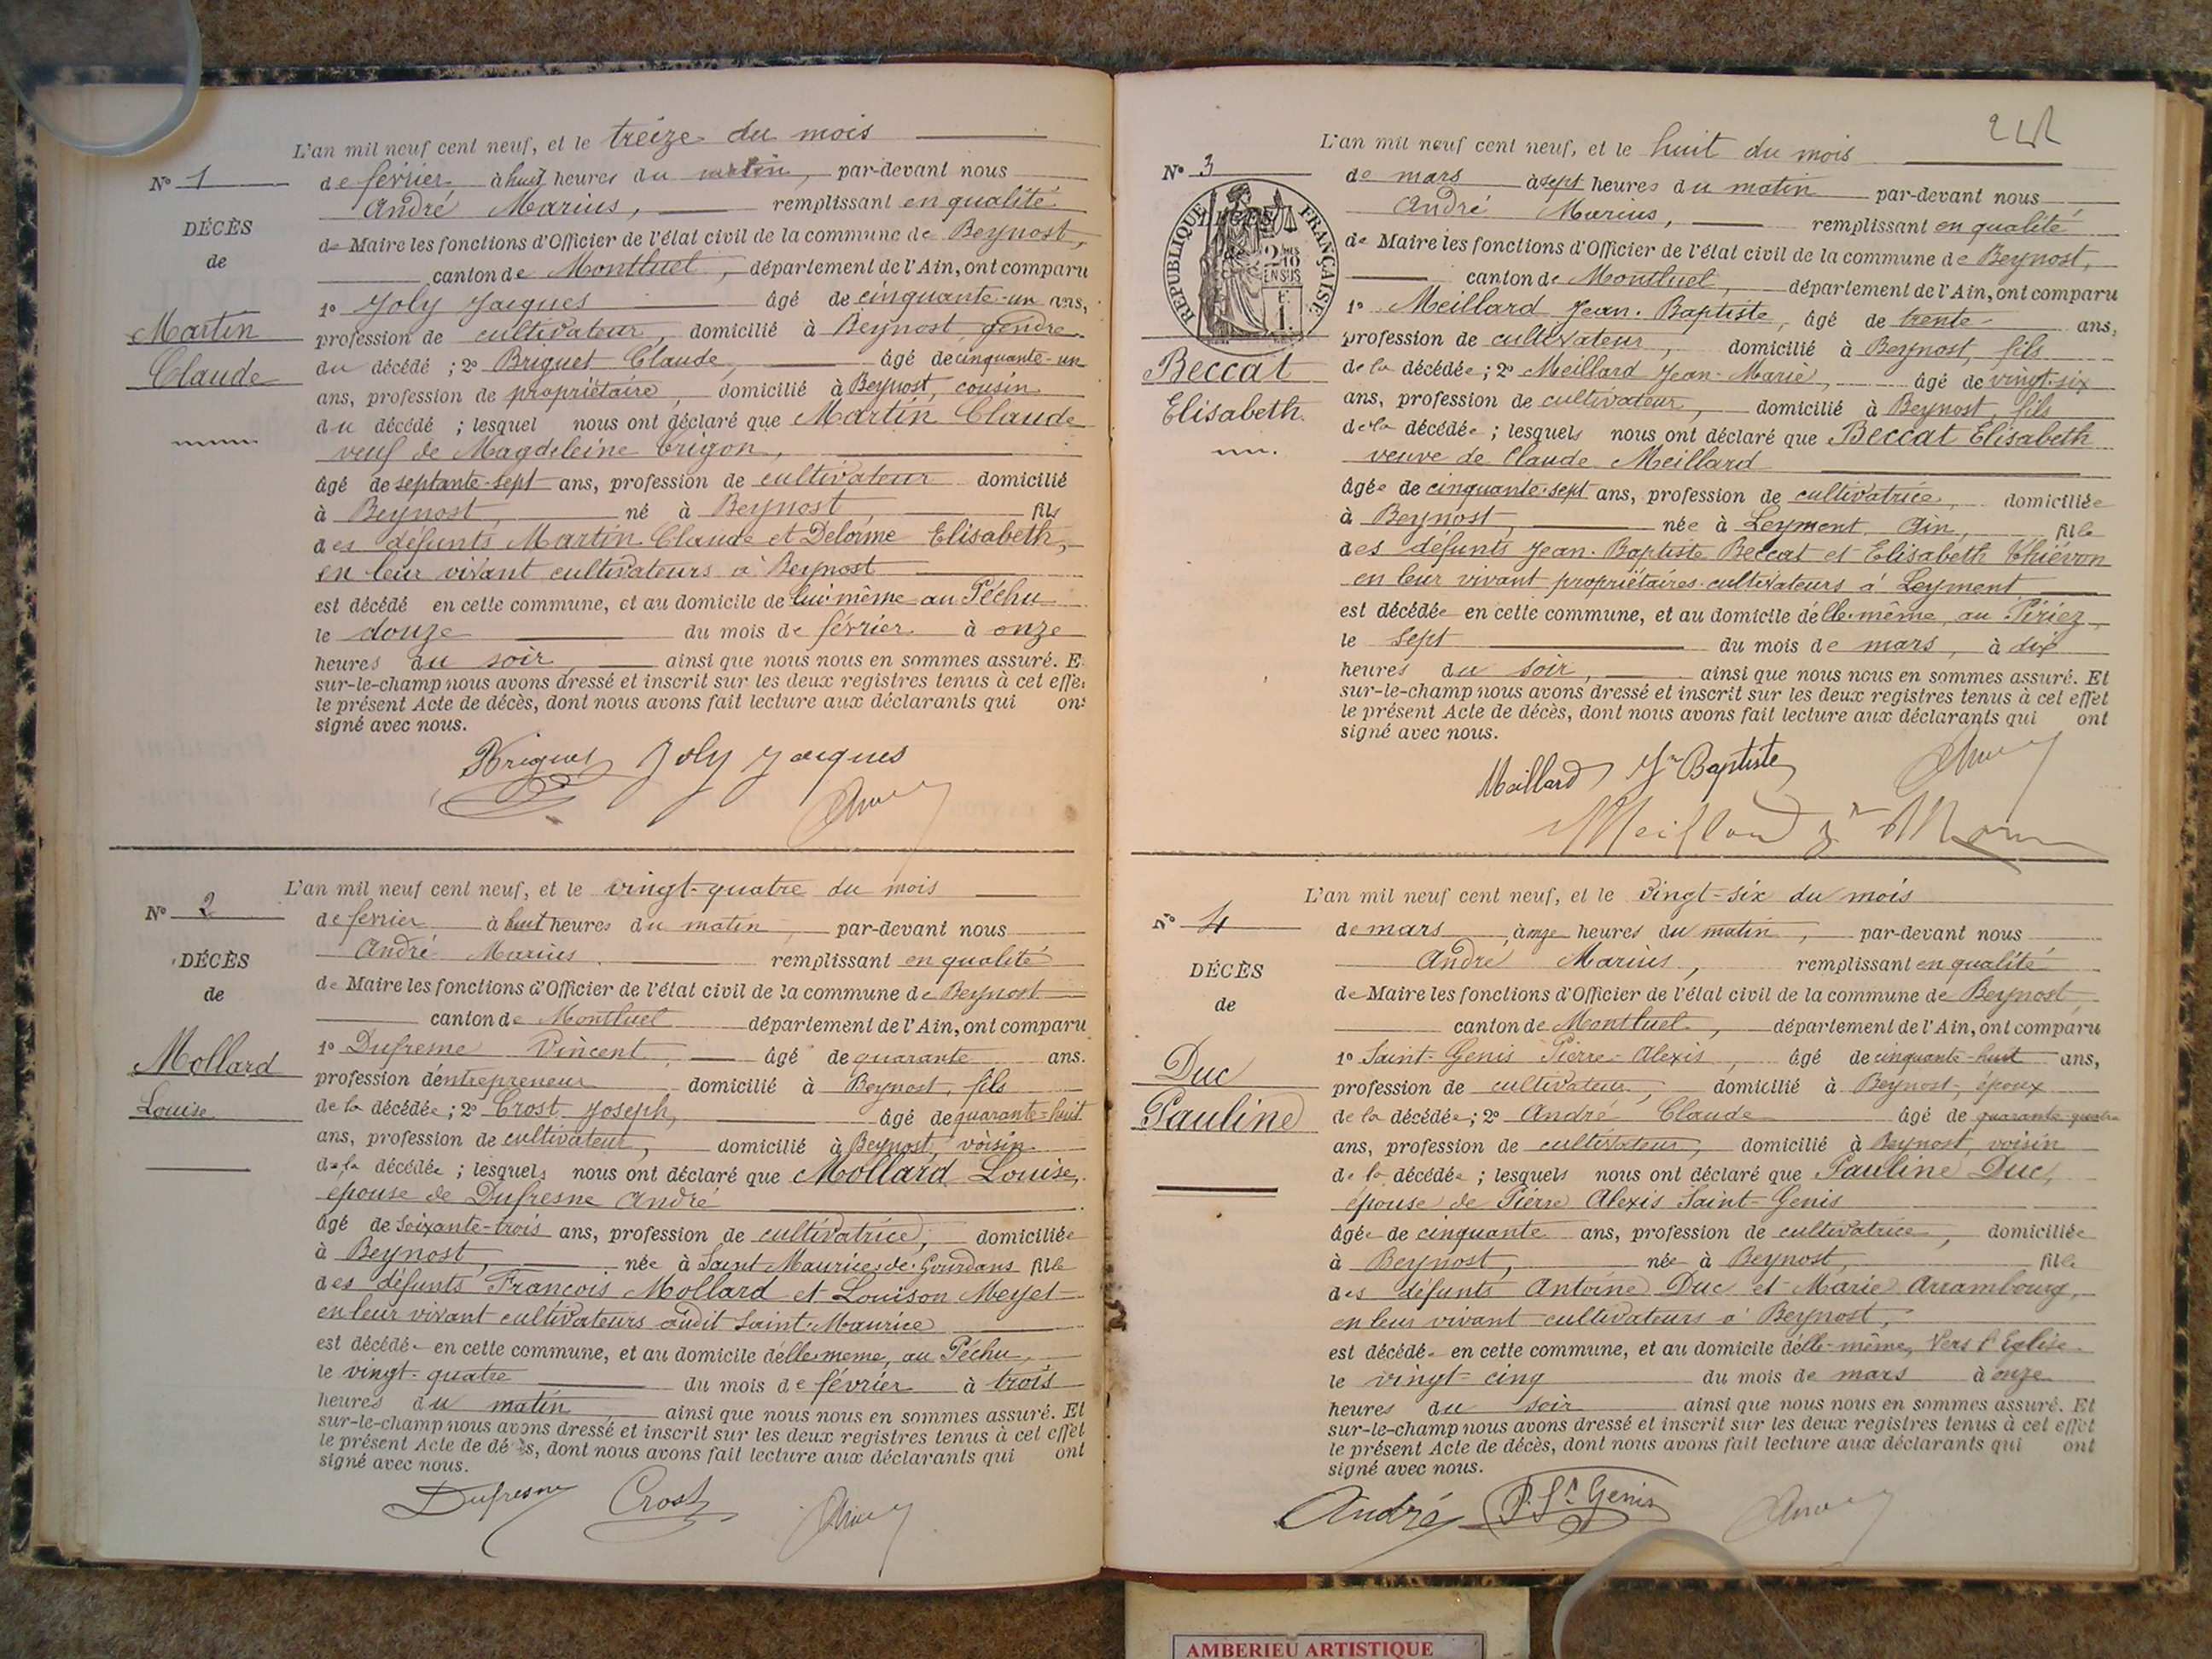 L'an mil neuf cent neuf, et le treize du mois
N° 1
de février, à huit heures du matin, par-devant nous
André Marius, remplissant en qualité
DÉCÈS
de
de Maire les fonctions d'Officier de l'état civil de la commune de Beynost,
canton de Montluel, département de l'Ain, ont comparu
1° Joly Jacques âgé de cinquante-un ans,
Martin
Claude
profession de cultivateur, domicilié à Beynost gendre
du décédé ; 2° Briguet Claude, âgé de cinquante-un
ans, profession de propriétaire, domicilié à Beynost, cousin
du décédé ; lesquel nous ont déclaré que Martin Claude
veuf de Magdeleine Trigon,
âgé de septante-sept ans, profession de cultivateur domicilié
à Beynost, né à Beynost, fils
des défunts Martin Claude et Delorme Elisabeth,
en leur vivant cultivateurs à Beynost
est décédé en cette commune, et au domicile de lui-même au Péchu
le douze du mois de février à onze
heures du soir, ainsi que nous nous en sommes assuré. E
sur-le-champ nous avons dressé et inscrit sur les deux registres tenus à cet effe
le présent Acte de décès, dont nous avons fait lecture aux déclarants qui on
signé avec nous.
Briguet Joly Jacques
L'an mil neuf cent neuf, et le vingt-quatre du mois
N° 2
de fevrier à huit heures du matin, par-devant nous
André Marius, remplissant en qualité
DÉCÈS
de
de Maire les fonctions d'Officier de l'état civil de la commune de Beynost
canton de Montluel département de l'Ain, ont comparu
1° Dufresne Vincent, âgé de quarante ans.
Mollard
Louise
profession d'entrepreneur domicilié à Beynost, fils
de la décédée ; 2° Crost Joseph, âgé de quarante-huit
ans, profession de cultivateur, domicilié à Beynost, voisin
de la décédée ; lesquels nous ont déclaré que Mollard Louise,
épouse de Dufresne André
âgé de soixante-trois ans, profession de cultivatrice, domiciliée
à Beynost, née à Saint Maurice de Gourdans fille
des défunts François Mollard et Louison Meyet
en leur vivant cultivateurs audit Saint-Maurice
est décédé en cette commune, et au domicile d'elle-meme, au Péchu,
le vingt-quatre du mois de février à trois
heures du matin ainsi que nous nous en sommes assuré. Et
sur-le-champ nous avons dressé et inscrit sur les deux registres tenus à cet effet
le présent Acte de décès, dont nous avons fait lecture aux déclarants qui ont
signé avec nous.
Dufresne Crost
L'an mil neuf cent neuf, et le huit du mois
N° 3
de mars à sept heures du matin par-devant nous
André Marius, remplissant en qualité
RÉPUBLIQUE FRANÇAISE
de Maire les fonctions d'Officier de l'état civil de la commune de Beynost,
canton de Montluel, département de l'Ain, ont comparu
1° Meillard Jean-Baptiste, âgé de trente ans,
Beccat
Elisabeth.
profession de cultivateur, domicilié à Beynost, fils
de la décédée ; 2° Meillard Jean-Marie, âgé de vingt-six
ans, profession de cultivateur, domicilié à Beynost, fils
de la décédée ; lesquels nous ont déclaré que Beccat Elisabeth
veuve de Claude Meillard
âgée de cinquante-sept ans, profession de cultivatrice, domiciliée
à Beynost, née à Leyment, Ain, fille
des défunts Jean-Baptiste Beccat et Elisabeth Thiévon
en leur vivant propriétaires-cultivateurs à Leyment
est décédée en cette commune, et au domicile d'elle-même, au Piriez
le sept du mois de mars, à dix
heures du soir, ainsi que nous nous en sommes assuré. Et
sur-le-champ nous avons dressé et inscrit sur les deux registres tenus à cet effet
le présent Acte de décès, dont nous avons fait lecture aux déclarants qui ont
signé avec nous.
Meillard Jn Baptiste
L'an mil neuf cent neuf, et le vingt-six du mois
N° 4
de mars, à onze heures du matin, par-devant nous
André Marius, remplissant en qualité
DÉCÈS
de
de Maire les fonctions d'Officier de l'état civil de la commune de Beynost
canton de Montluel, département de l'Ain, ont comparu
1° Saint-Genis Pierre-Alexis, âgé de cinquante-huit ans,
Duc
Pauline
profession de cultivateur, domicilié à Beynost, époux
de la décédée ; 2° André Claude âgé de quarante-quatre
ans, profession de cultivateur, domicilié à Beynost, voisin
de la décédée ; lesquels nous ont déclaré que Pauline Duc,
épouse de Pierre Alexis Saint-Genis
âgée de cinquante ans, profession de cultivatrice, domiciliée
à Beynost, née à Beynost, fille
des défunts Antoine Duc et Marie Arrambourg,
en leur vivant cultivateurs à Beynost,
est décédé en cette commune, et au domicile d'elle-même, Vers l'Eglise
le vingt-cinq du mois de mars à onze
heures du soir ainsi que nous nous en sommes assuré. Et
sur-le-champ nous avons dressé et inscrit sur les deux registres tenus à cet effet
le présent Acte de décès, dont nous avons fait lecture aux déclarants qui ont
signé avec nous.
André P. St Genis
AMBERIEU ARTISTIQUE